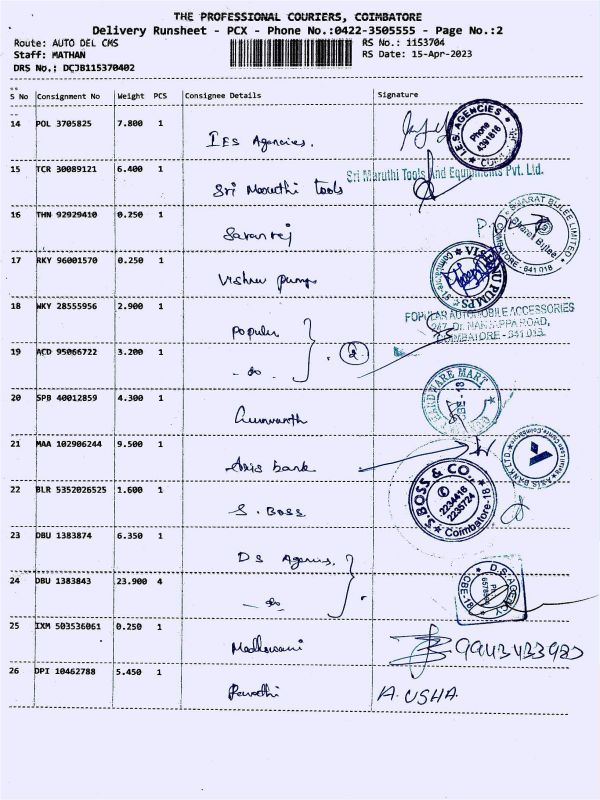 THE PROFESSIONAL COURIERS, COIMBATORE
Delivery Runsheet - PCX - Phone No.:0422-3505555 - Page No.:2
Route: AUTO DEL CMS RS No.: 1153704
Staff: MATHAN RS Date: 15-Apr-2023
DRS No.: DCJB115370402
S No Consignment No Weight PCS Consignee Details Signature
14 POL 3705825 7.800 1 IES Agencies.
I.E.S. AGENCIES Phone 4391818
15 TCR 30089121 6.400 1 Sri Maruthi Tools
Sri Maruthi Tools And Equipments Pvt. Ltd.
16 THN 92929410 0.250 1 Saranraj
BHARAT BIJLEE LIMITED
Bharat Bijlee
COIMBATORE - 641 018
17 RKY 96001570 0.250 1 Vishnu pumps
VISHNU PUMPS Coimbatore-18
18 WKY 28555956 2.900 1 Populer
POPULAR AUTOMOBILE ACCESSORIES
267, Dr. NANJAPPA ROAD,
COIMBATORE - 641 018.
19 ACD 95066722 3.200 1 - do - 2
20 SPB 40012859 4.300 1
HARDWARE MART
21 MAA 102906244 9.500 1 Axis bank
AXIS BANK LTD.
22 BLR 5352026525 1.600 1 S. BOSS
S. BOSS & CO.,
2234416
2235724
Coimbatore-18
23 DBU 1383874 6.350 1 DS Agencies.
24 DBU 1383843 23.900 4 - do -
D.S. AGENCY CBE-18
25 IXM 503536061 0.250 1
26 DPI 10462788 5.450 1 Revathi A. USHA.